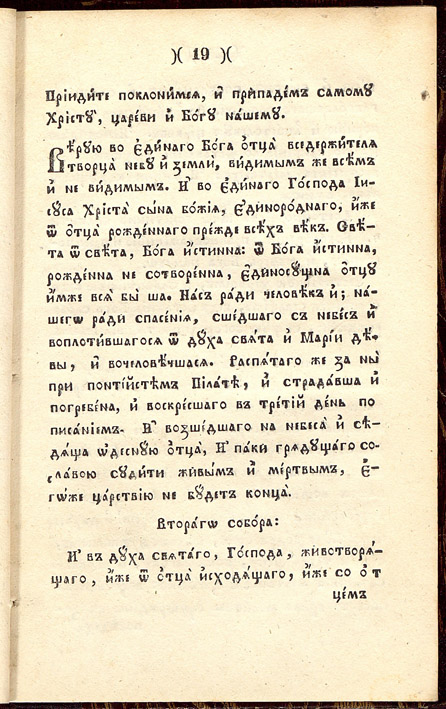 )( 19 )(
Прїиди́те поклони́мсѧ, и҆ припаде́мъ самому
Хрїсту̀, царе́ви и҆ Бо́гу на́шему.
Вѣ́рую во є҆ди́наго Бо́га ѻ҆тца̀ вседержи́телѧ
творца̀ небу и҆ землѝ, ви́димымъ же всѣ́мъ
и҆ не ви́димымъ. И҆ во є҆ди́наго Го́спода Іи-
су́са Хріста̀ сы́на бо́жїѧ, є҆диноро́днаго, и҆́же
ѿ ѻ҆тца̀ рожде́ннаго пре́жде всѣ́хъ вѣ́къ. Свѣ́-
та ѿ свѣ́та, Бо́га и҆́стинна: ѿ Бо́га и҆́стинна,
рожде́нна не сотворе́нна, є҆диносу́щна ѻ҆тцу̀
и҆́мже всѧ̀ бы́ ша. На́съ ра́ди человѣ́къ и҆; на́-
шегѡ ра́ди спасе́нїѧ, сше́дшаго съ небе́съ и҆
воплоти́вшагосѧ ѿ ду́ха свѧ́та и҆ Марі́и дѣ́-
вы, и҆ вочеловѣ́чшасѧ. Распѧ́таго же за ны̀
при понті́йстѣмъ Піла́тѣ, и҆ страда́вша и҆
погребе́на, и҆ воскре́сшаго въ тре́тїй де́нь по
писа́нїємъ. И҆ возше́дшаго на небеса̀ и҆ сѣ-
дѧ́ща ѡ҆десну́ю ѻ҆тца̀, И҆ па́ки грѧду́щаго со-
сла́вою суди́ти живы́мъ и҆ ме́ртвымъ, є҆-
гѡ́же ца́рствїю не бу́детъ конца̀.
Втора́гѡ собо́ра:
И҆ въ ду́ха свѧта́го, Го́спода, животворѧ́-
щаго, и҆́же ѿ ѻ҆тца̀ и҆сходѧ́щаго, и҆́же со ѻ҆т
це́мъ